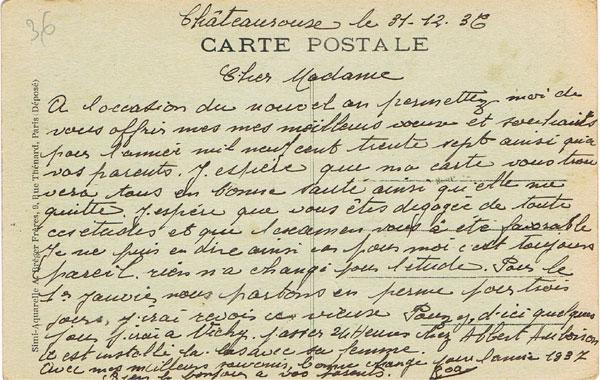 36
Châteaurouse le 31-12. 36
CARTE POSTALE
Cher Madame
A l'occasion du nouvel an permettez moi de
vous offrir mes mes meilleurs voeux et souhaits
pour l'année mil neuf cent trente sept ainsi qu'a
vos parents. J'espère que ma carte vous trou
vera tous en bonne santé ainsi qu'elle me
quitte J'espère que vous êtes degagée de toute
ces etudes et que l'examen vous a été favorable
Je ne puis en dire ainsi pour moi c'est toujours
pareil. rien n'a changé pour l'étude. Pour le
1er Janvier nous partons en perme pour trois
jours, j'irai revoir ce vieux d'ici quelques
jour j'irai a Vichy. passer 24 Heures chez Albert
Il est installé la bas avec sa femme.
Avec mes meilleurs souvenirs, bonne chance pour l'année 1937
Bien le bonjour a vos parents.
Simi-Aquarelle A. Bréger Frères, 9, Rue Thénard, Paris (Déposé)